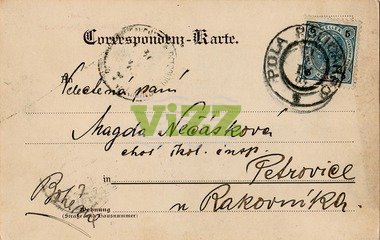 Correspondenz-Karte.
POLA
5
An
Velectěná paní
ViZZ
Magda Nečásková
choť škol. insp.
in
Petrovice
u Rakovníka.
Bohemia
Wohnung
(Straße und Hausnummer)